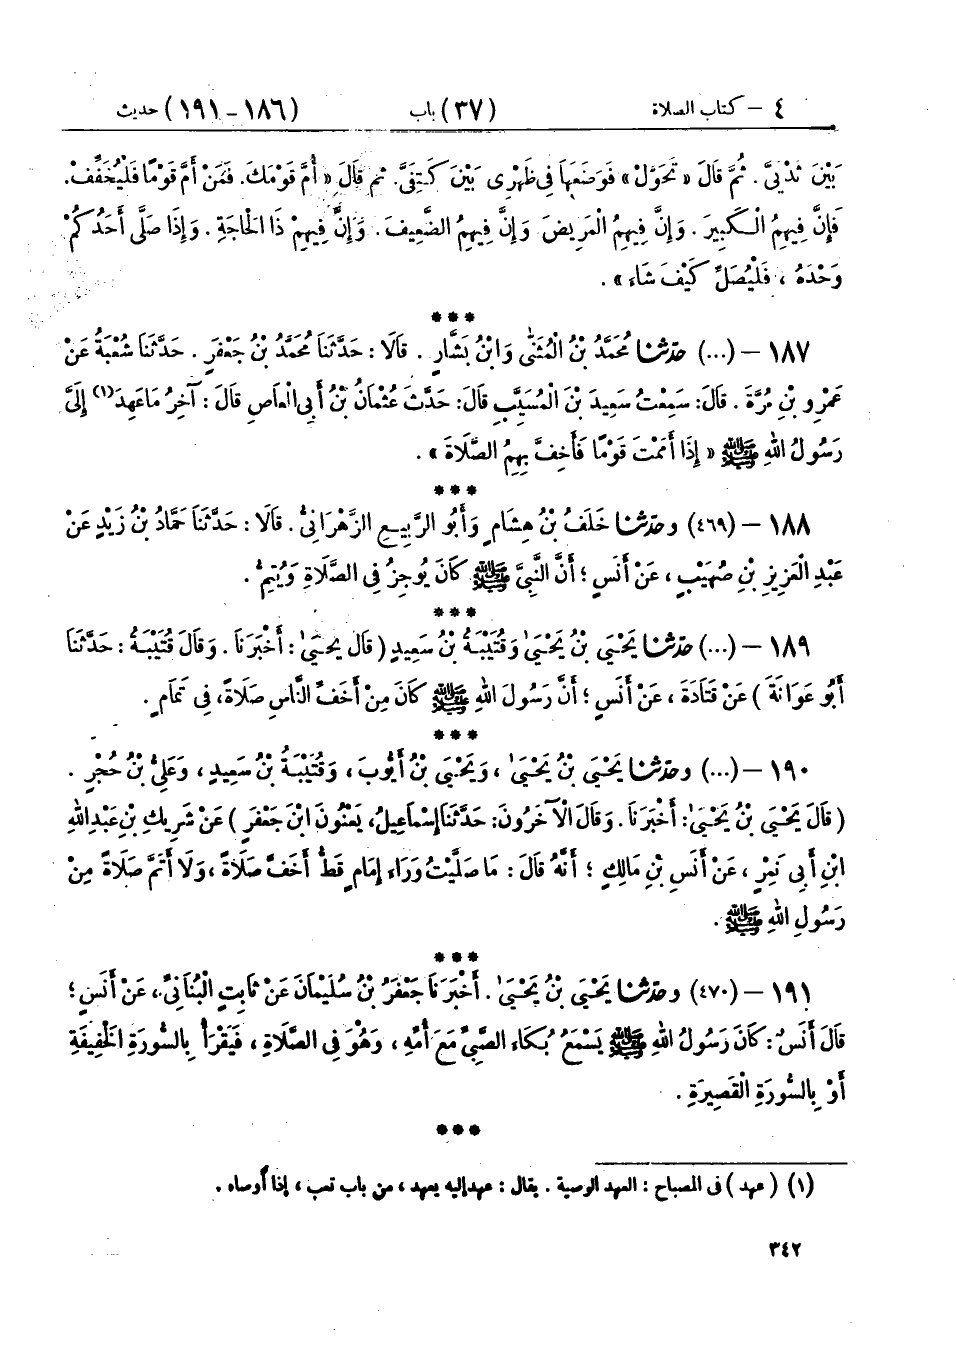 ٤ – كتاب الصلاة (٣٧) باب (١٨٦ – ١٩١) حديث
بَيْنَ ثَدْيَيَّ . ثُمَّ قَالَ « تَحَوَّلْ » فَوَضَعَهَا فِي ظَهْرِي بَيْنَ كَتِفَيَّ. ثم قَالَ « أُمَّ قَوْمَكَ. فَمَنْ أَمَّ قَوْمًا فَلْيُخَفِّفْ.
فَإِنَّ فِيهِمُ الْكَبِيرَ . وَإِنَّ فِيهِمُ الْمَرِيضَ وَإِنَّ فِيهِمُ الضَّعِيفَ . وَإِنَّ فِيهِمْ ذَا الْحَاجَةِ . وَإِذَا صَلَّى أَحَدُكُمْ
وَحْدَهُ ، فَلْيُصَلِّ كَيْفَ شَاءَ » .
***
١٨٧ – (...) حدثنا مُحَمَّدُ بْنُ الْمُثَنَّى وَابْنُ بَشَّارٍ . قَالَا : حَدَّثَنَا مُحَمَّدُ بْنُ جَعْفَرٍ . حَدَّثَنَا شُعْبَةُ عَنْ
عَمْرِو بْنِ مُرَّةَ . قَالَ: سَمِعْتُ سَعِيدَ بْنَ الْمُسَيَّبِ قَالَ: حَدَّثَ عُثْمَانُ بْنُ أَبِي الْعَاصِ قَالَ : آخِرُ مَا عَهِدَ(١) إِلَيَّ
رَسُولُ اللهِ ﷺ « إِذَا أَمَمْتَ قَوْمًا فَأَخِفَّ بِهِمُ الصَّلَاةَ » .
***
١٨٨ – (٤٦٩) وحدثنا خَلَفُ بْنُ هِشَامٍ وَأَبُو الرَّبِيعِ الزَّهْرَانِيُّ . قَالَا : حَدَّثَنَا حَمَّادُ بْنُ زَيْدٍ عَنْ
عَبْدِ الْعَزِيزِ بْنِ صُهَيْبٍ ، عَنْ أَنَسٍ ؛ أَنَّ النَّبِيَّ ﷺ كَانَ يُوجِزُ فِي الصَّلَاةِ وَيُتِمُّ .
***
١٨٩ – (...) حدثنا يَحْيَى بْنُ يَحْيَى وَقُتَيْبَةُ بْنُ سَعِيدٍ ( قَالَ يَحْيَى : أَخْبَرَنَا . وَقَالَ قُتَيْبَةُ : حَدَّثَنَا
أَبُو عَوَانَةَ ) عَنْ قَتَادَةَ ، عَنْ أَنَسٍ ؛ أَنَّ رَسُولَ اللهِ ﷺ كَانَ مِنْ أَخَفِّ النَّاسِ صَلَاةً، فِي تَمَامٍ .
***
١٩٠ – (...) وحدثنا يَحْيَى بْنُ يَحْيَى ، وَيَحْيَى بْنُ أَيُّوبَ ، وَقُتَيْبَةُ بْنُ سَعِيدٍ ، وَعَلِيُّ بْنُ حُجْرٍ .
( قَالَ يَحْيَى بْنُ يَحْيَى: أَخْبَرَنَا . وَقَالَ الْآخَرُونَ: حَدَّثَنَا إِسْمَاعِيلُ، يَعْنُونَ ابْنَ جَعْفَرٍ ) عَنْ شَرِيكِ بْنِ عَبْدِ اللهِ
ابْنِ أَبِي نَمِرٍ ، عَنْ أَنَسِ بْنِ مَالِكٍ ؛ أَنَّهُ قَالَ : مَا صَلَّيْتُ وَرَاءَ إِمَامٍ قَطُّ أَخَفَّ صَلَاةً ، وَلَا أَتَمَّ صَلَاةً مِنْ
رَسُولِ اللهِ ﷺ .
***
١٩١ – (٤٧٠) وحدثنا يَحْيَى بْنُ يَحْيَى . أَخْبَرَنَا جَعْفَرُ بْنُ سُلَيْمَانَ عَنْ ثَابِتٍ الْبُنَانِيِّ، عَنْ أَنَسٍ ؛
قَالَ أَنَسٌ : كَانَ رَسُولُ اللهِ ﷺ يَسْمَعُ بُكَاءَ الصَّبِيِّ مَعَ أُمِّهِ ، وَهُوَ فِي الصَّلَاةِ ، فَيَقْرَأُ بِالسُّورَةِ الْخَفِيفَةِ
أَوْ بِالسُّورَةِ الْقَصِيرَةِ .
***
(١) ( عهد ) فى المصباح : العهد الوصية . يقال : عهد إليه يعهد ، من باب تعب ، إذا أوصاه .
٣٤٢